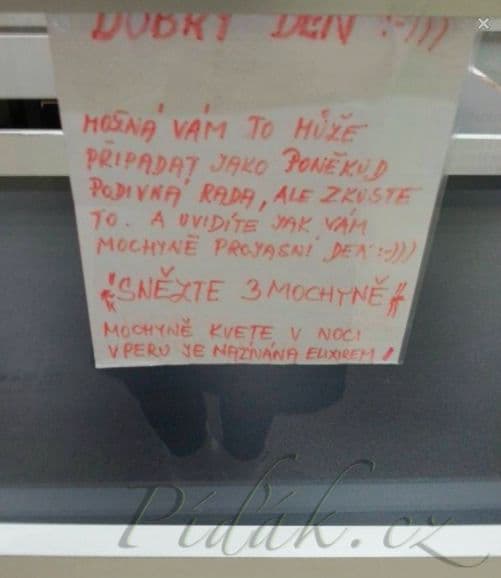 DOBRÝ DEN :-)))
MOŽNÁ VÁM TO MŮŽE
PŘIPADAT JAKO PONĚKUD
PODIVNÁ RADA, ALE ZKUSTE
TO. A UVIDÍTE JAK VÁM
MOCHYNĚ PROJASNÍ DEN :-)))
"SNĚZTE 3 MOCHYNĚ"
MOCHYNĚ KVETE V NOCI
V PERU JE NAZÝVÁNA ELIXIREM!
Piďák.cz